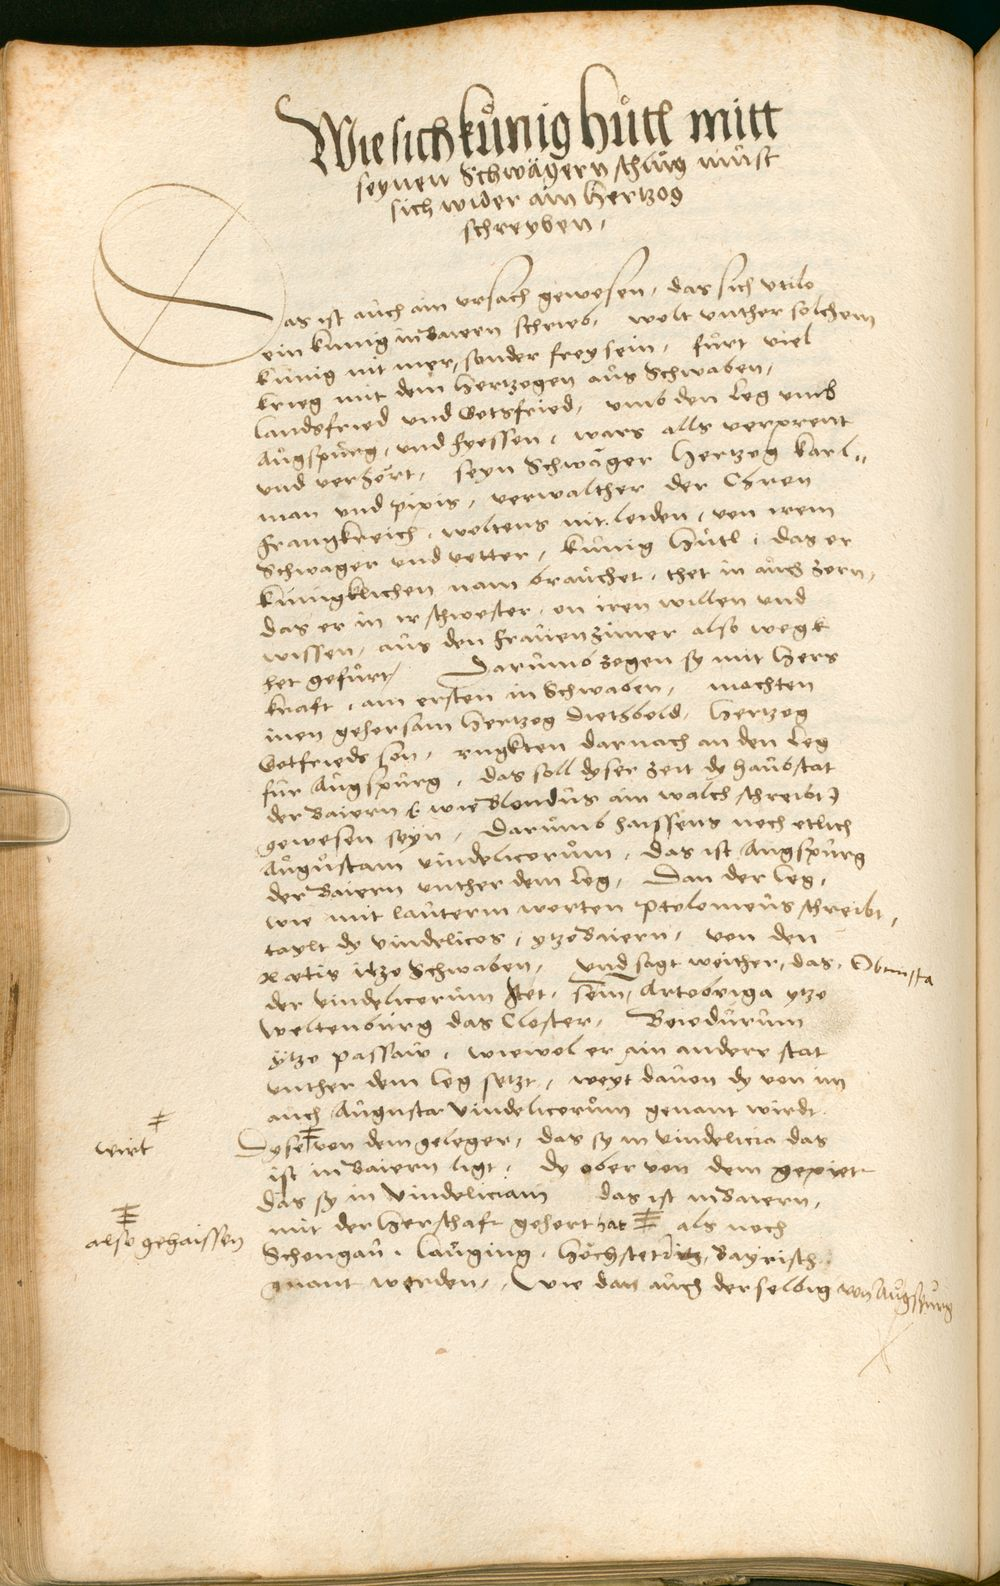 Wie sich künig hütl mitt
seynen Schwägern schlüg müst
sich wider ain Hertzog
schreyben,
Das ist auch ain vrsach gewesen, das sich vtilo
ein kunig in Baiern schrieb, wolt vnther solchem
künig nit mer, sonder frey sein, fürt viel
krieg mit dem Hertzogen aus Schwaben,
Landsfried vnd Gotsfried, vmb den Leg vmb
Augspurg, vnd Fyessen, wars alls verprent
vnd verhört, seyn Schwäger Hertzog Karl„
man vnd pipis, verwalther der Chron
Frangkreich, woltens nit leiden, von irem
Schwager vnd vetter, künig Hütl, das er
künigklichen nam brauchet, thet in auch zorn,
das er in ir schwester, on iren willen vnd
wissen, aus den Frauenzimer also wegk
het gefürt, Darumb zogen sy mit Hers
kraft, am ersten in Schwaben, machten
inen gehorsam Hertzog Diethbold, Hertzog
Gotfrieds son, rugkten darnach an den Leg
für Augspurg, das soll dyser zeit dy haubstat
der Baiern (wie Blondus ain walch schreibt)
gewesen seyn, Darumb haissens noch etlich
Augustam vindelicorum, das ist Augspurg
der Baiern vnther dem Leg, Dan der Leg,
wie mit lauterm worten Ptolomeus schreibt,
taylt dy vindelicos, ytzo Baiern, von den
Rætis itzo Schwaben, vnd sagt weither, das,
der vindelicorum stet, sein, Artobriga ytzo
Weltenburg das Closter, Boiodurum
ytzo Passaw, wiewol er ain andere stat
vnther dem Leg setzt, weyt davon dy von im
auch Augusta vindelicorum genant wirdt
wirt
Dyse von dem geleger, das sy in vindelicia das
ist in Baiern ligt, dy ober von dem gepiet
das sy in vindeliciam das ist in Baiern,
mit der Herschaft gehort hat als noch
also gehaissen
Schongau, Lauging, Höchstet, Bayrisch
gnant werden, Wie dan auch derselbig von Augspurg